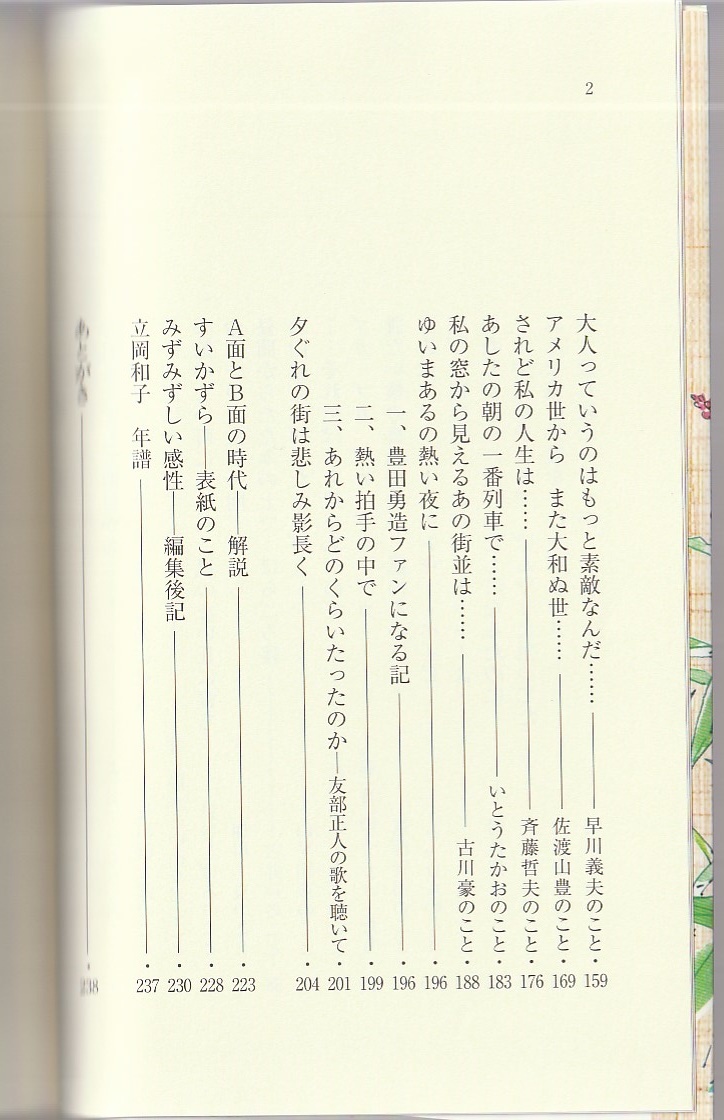 2
大人っていうのはもっと素敵なんだ……――早川義夫のこと・159
アメリカ世から　また大和ぬ世……――佐渡山豊のこと・169
されど私の人生は……――斉藤哲夫のこと・176
あしたの朝の一番列車で……――いとうたかおのこと・183
私の窓から見えるあの街並は……――古川豪のこと・188
ゆいまあるの熱い夜に――・196
一、豊田勇造ファンになる記――・196
二、熱い拍手の中で――・199
三、あれからどのくらいたったのか―友部正人の歌を聴いて・201
夕ぐれの街は悲しみ影長く――・204
A面とB面の時代――解説――・223
すいかずら――表紙のこと――・228
みずみずしい感性――編集後記――・230
立岡和子　年譜――・237
あとがき――・238